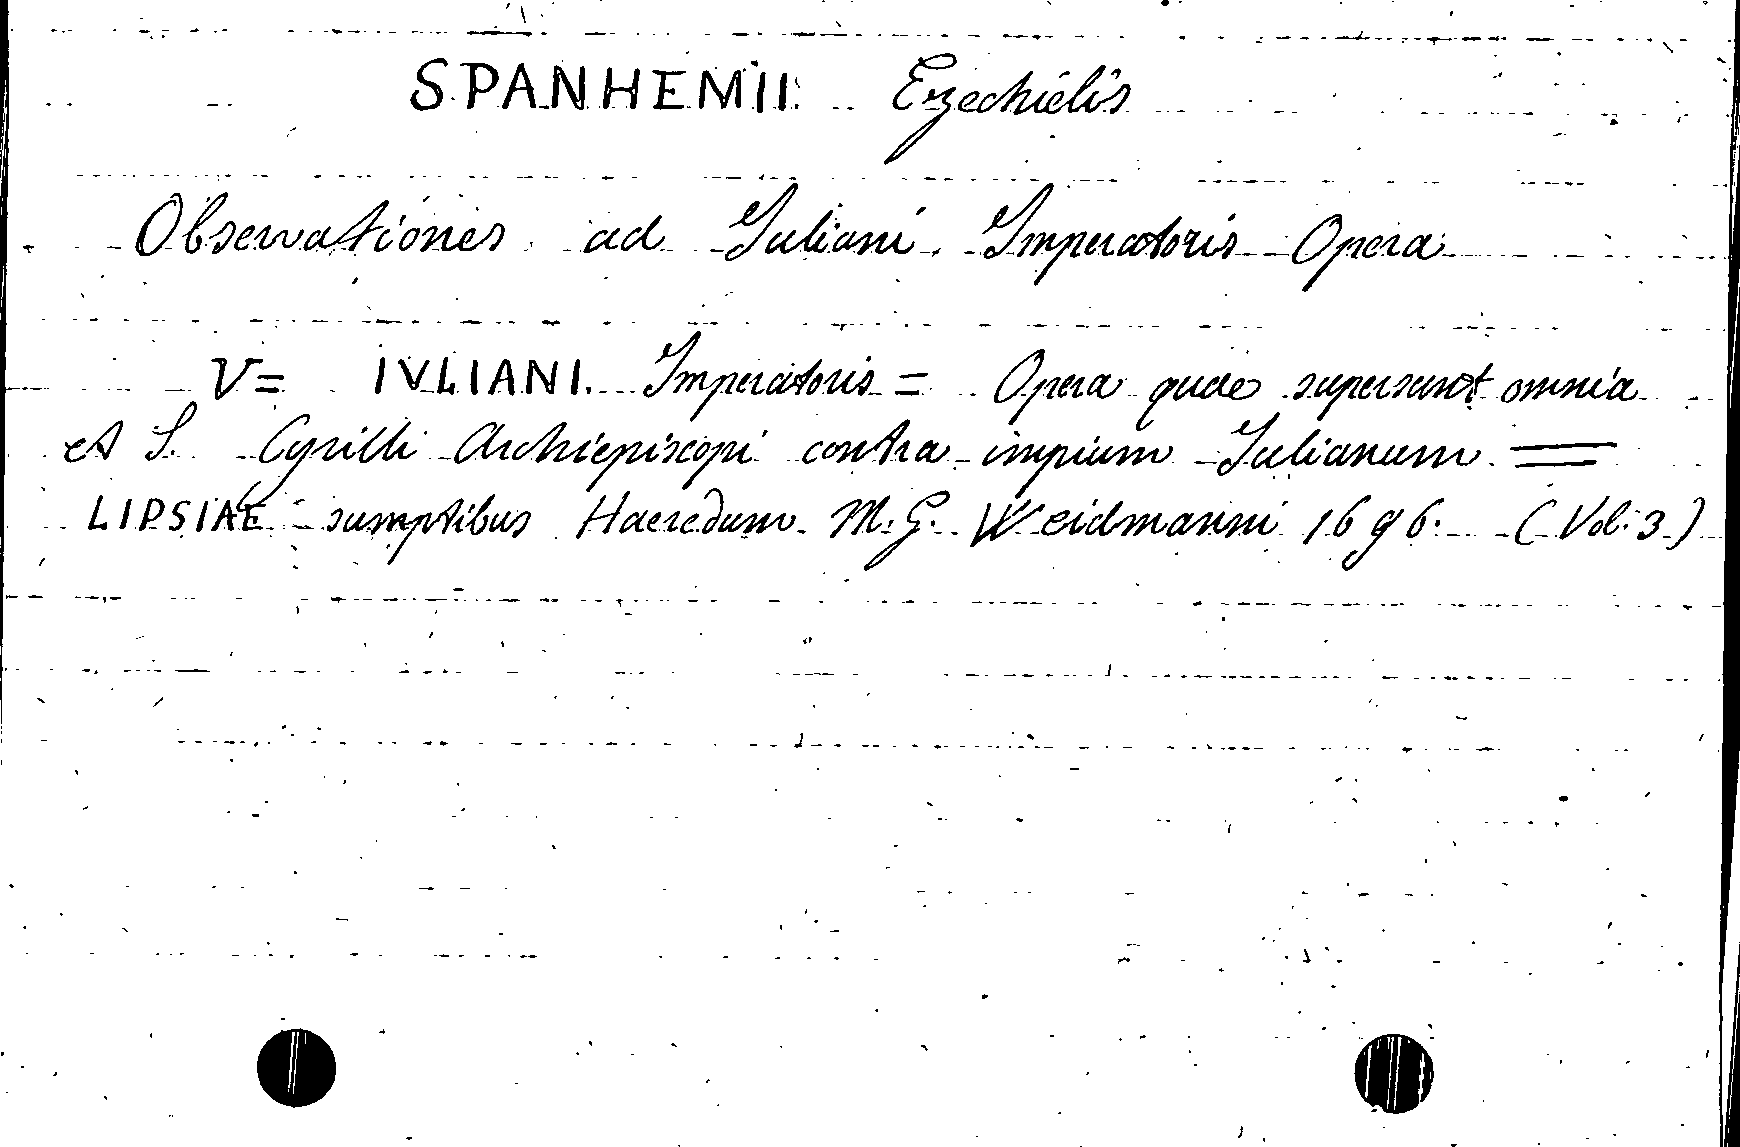 SPANHEMII Ezechielis
Observationes ad Iuliani Imperatoris Opera
V= IVLIANI. Imperatoris = Opera quae supersunt omnia
et S. Cyrilli Archiepiscopi contra impium Iulianum =
LIPSIAE - sumptibus Haeredum M. G. Weidmanni 1696. (Vol. 3)